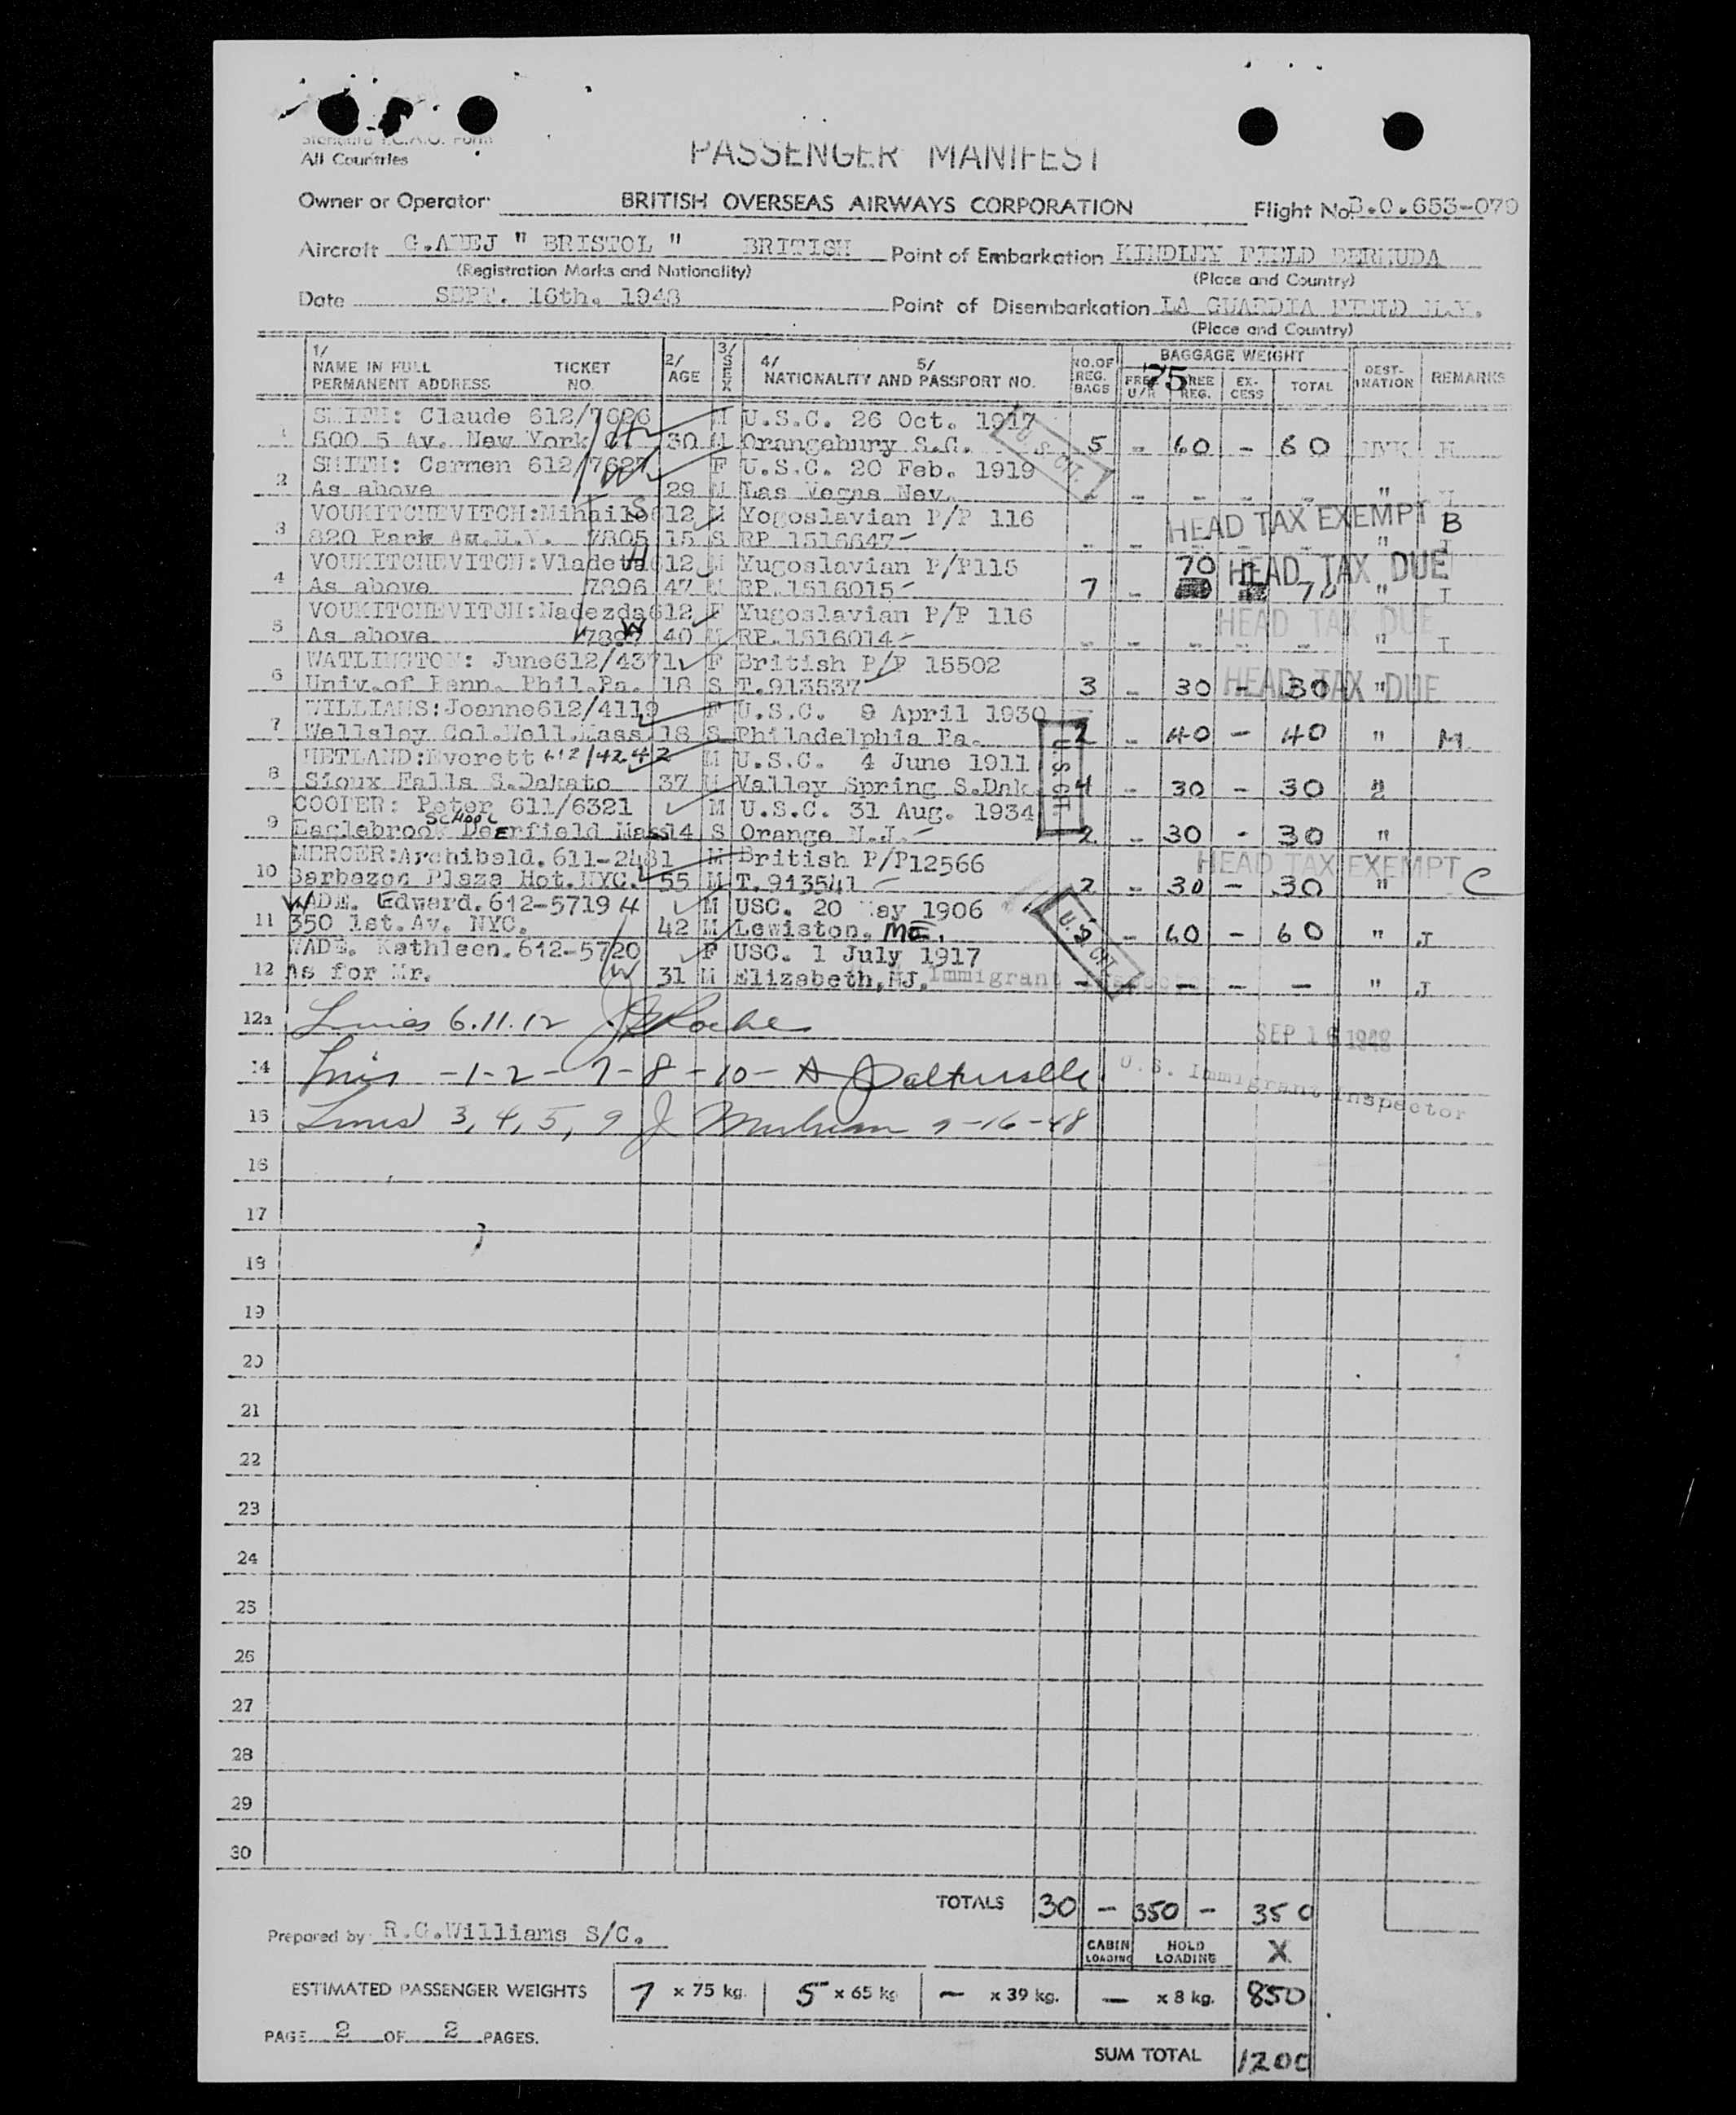 Standard I.C.A.O. Form
All Countries
PASSENGER MANIFEST
Owner or Operator BRITISH OVERSEAS AIRWAYS CORPORATION Flight No. B.O.653-079
Aircraft "BRISTOL" BRITISH Point of Embarkation KINDLEY FIELD BERMUDA
(Registration Marks and Nationality) (Place and Country)
Date SEPT. 16th. 1948 Point of Disembarkation LA GUARDIA FIELD N.Y.
(Place and Country)
1/ NAME IN FULL PERMANENT ADDRESS TICKET NO. 2/ AGE 3/ SEX 4/ 5/ NATIONALITY AND PASSPORT NO. NO.OF REG. BAGS BAGGAGE WEIGHT FREE U/R FREE REG. EX-CESS TOTAL DEST-INATION REMARKS
75
SMITH: Claude 612/7626 M U.S.C. 26 Oct. 1917
1 500 5 Av. New York H 30 M Orangebury S.C. 5 - 60 - 60 NYK
U.S. CIT.
SMITH: Carmen 612/7627 F U.S.C. 20 Feb. 1919
2 As above W 29 M Las Vegas Nev. - - - - - "
VOUKITCHEVITCH:Mihailo 612 M Yogoslavian P/P 116
HEAD TAX EXEMPT B
3 820 Park Av.N.Y. 7895 15 S RP 1516647 - - "
VOUKITCHEVITCH:Vladeta 612 M Yugoslavian P/P115 70 HEAD TAX DUE
4 As above 7896 47 M RP.1516015 7 - 70 " I
VOUKITCHEVITCH:Nadezda 612 F Yugoslavian P/P 116 HEAD TAX DUE
5 As above 7897 W 40 M RP.1516014 - - - - - " I
WATLINGTON: June612/4371 F British P/P 15502
6 Univ.of Penn. Phil.Pa. 18 S T.913537 3 - 30 - 30 "
HEAD TAX DUE
WILLIAMS:Joanne612/4119 F U.S.C. 9 April 1930
7 Wellsley Col.Well.Mass 18 S Philadelphia Pa. 2 - 40 - 40 " M
U S CIT.
HETLAND:Everett 612/4242 M U.S.C. 4 June 1911
8 Sioux Falls S.Dakato 37 M Valley Spring S.Dak. 4 - 30 - 30 "
COOPER: Peter 611/6321 M U.S.C. 31 Aug. 1934
SCHOOL
9 Eaglebrook Deerfield Mass 14 S Orange N.J. 2 - 30 - 30 "
MERCER:Archibald.611-2481 M British P/P12566 HEAD TAX EXEMPT
10 Barbazon Plaza Hot.NYC. 55 M T.913541 2 - 30 - 30 " C
WADE. Edward.612-5719 H M USC. 20 May 1906
11 350 1st.Av. NYC. 42 M Lewiston. ME. 5 - 60 - 60 " J
U.S. CIT.
WADE. Kathleen.612-5720 F USC. 1 July 1917
12 As for Mr. W 31 M Elizabeth,NJ. - - - - - " J
Immigrant Inspector
12a Lines 6.11.12 J Roche
SEP 16 1948
14 Lines -1-2-7-8-10-
U.S. Immigrant Inspector
15 Lines 3, 4, 5, 9 J 9-16-48
16
17
18
19
20
21
22
23
24
25
26
27
28
29
30
TOTALS 30 - 350 - 350
Prepared by R.G.Williams S/C.
CABIN LOADING HOLD LOADING X
ESTIMATED PASSENGER WEIGHTS 7 x 75 kg. 5 x 65 kg - x 39 kg. - x 8 kg. 850
PAGE 2 OF 2 PAGES.
SUM TOTAL 1200